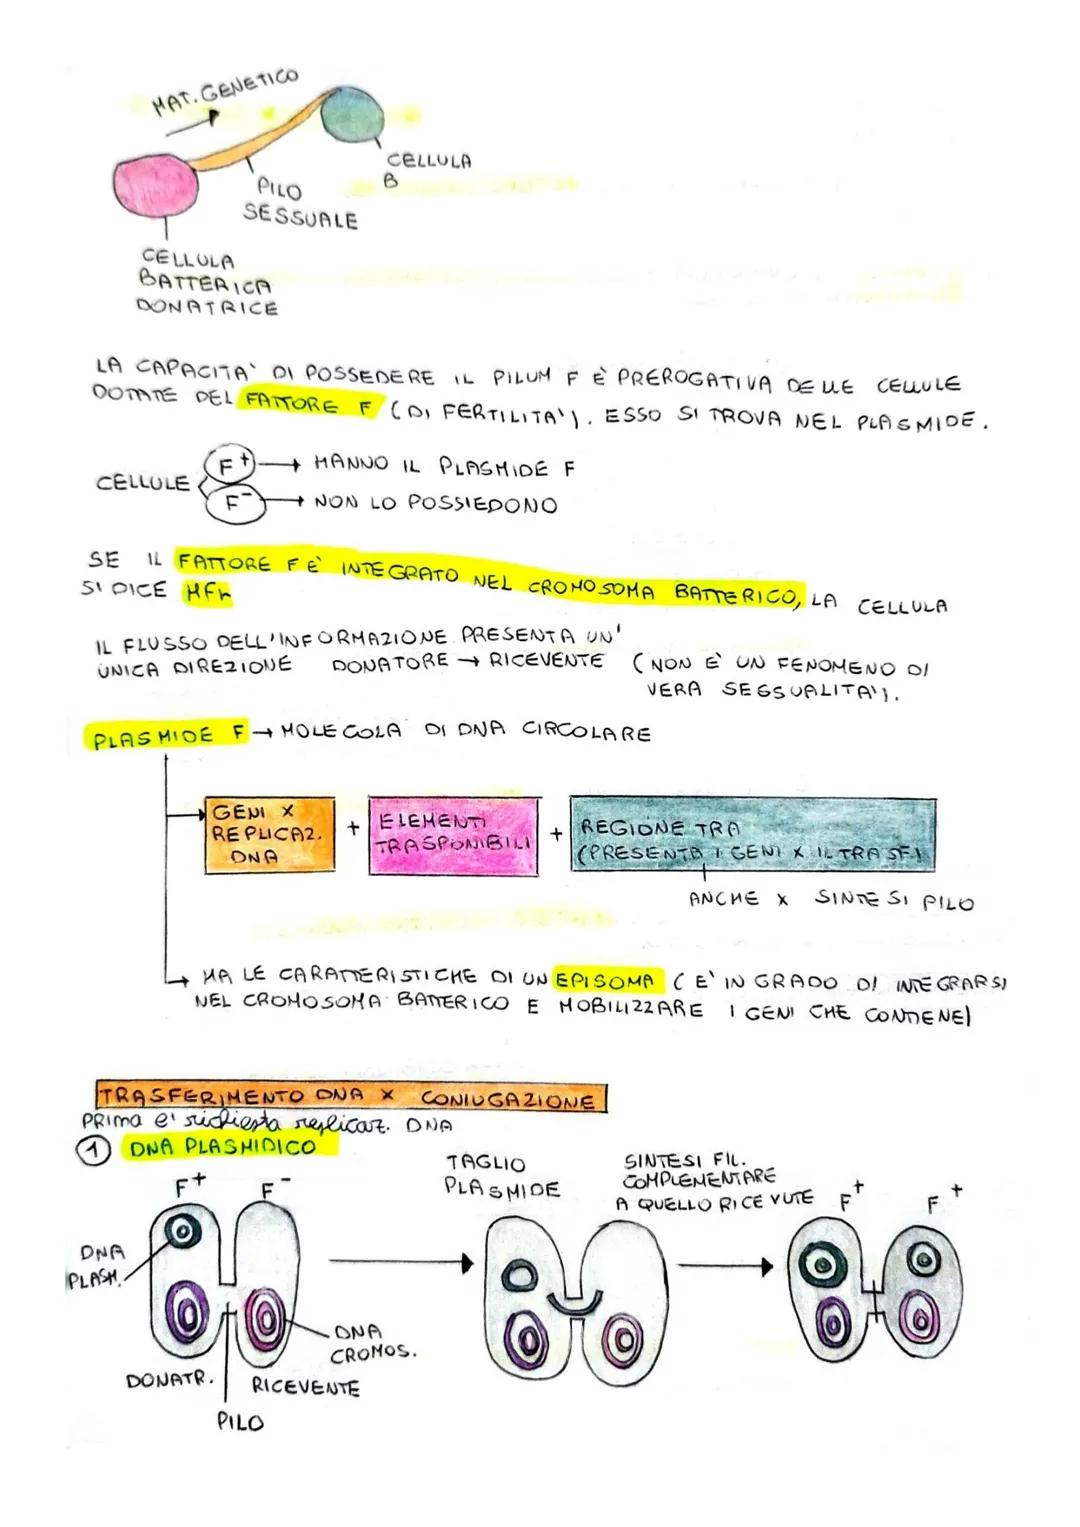 MAT. GENETICO
CELLULA
B
PILO
SESSUALE
CELLULA
BATTERICA
DONATRICE
LA CAPACITA' DI POSSEDERE IL PILUM F È PREROGATIVA DELLE CELLULE
DOTATE DEL FATTORE F (DI FERTILITA'). ESSO SI TROVA NEL PLASMIDE.
CELLULE
F+ → HANNO IL PLASMIDE F
F- → NON LO POSSIEDONO
SE IL FATTORE F E' INTEGRATO NEL CROMOSOMA BATTERICO, LA CELLULA
SI DICE HFr
IL FLUSSO DELL'INFORMAZIONE PRESENTA UN'
UNICA DIREZIONE DONATORE → RICEVENTE (NON E' UN FENOMENO DI
VERA SESSUALITA').
PLASMIDE F → MOLECOLA DI DNA CIRCOLARE
GENI X
REPLICAZ.
DNA
+
ELEMENTI
TRASPONIBILI
+
REGIONE TRA
(PRESENTA I GENI X IL TRASF.)
ANCHE X SINTESI PILO
→ HA LE CARATTERISTICHE DI UN EPISOMA (E' IN GRADO DI INTEGRARSI
NEL CROMOSOMA BATTERICO E MOBILIZZARE I GENI CHE CONTIENE)
TRASFERIMENTO DNA X CONIUGAZIONE
PRIMA e' richiesta replicaz. DNA
1 DNA PLASMIDICO
TAGLIO
PLASMIDE
SINTESI FIL.
COMPLEMENTARE
A QUELLO RICEVUTE
F+ F-
F+ F+
DNA
PLASM.
DNA
CROMOS.
DONATR.
RICEVENTE
PILO